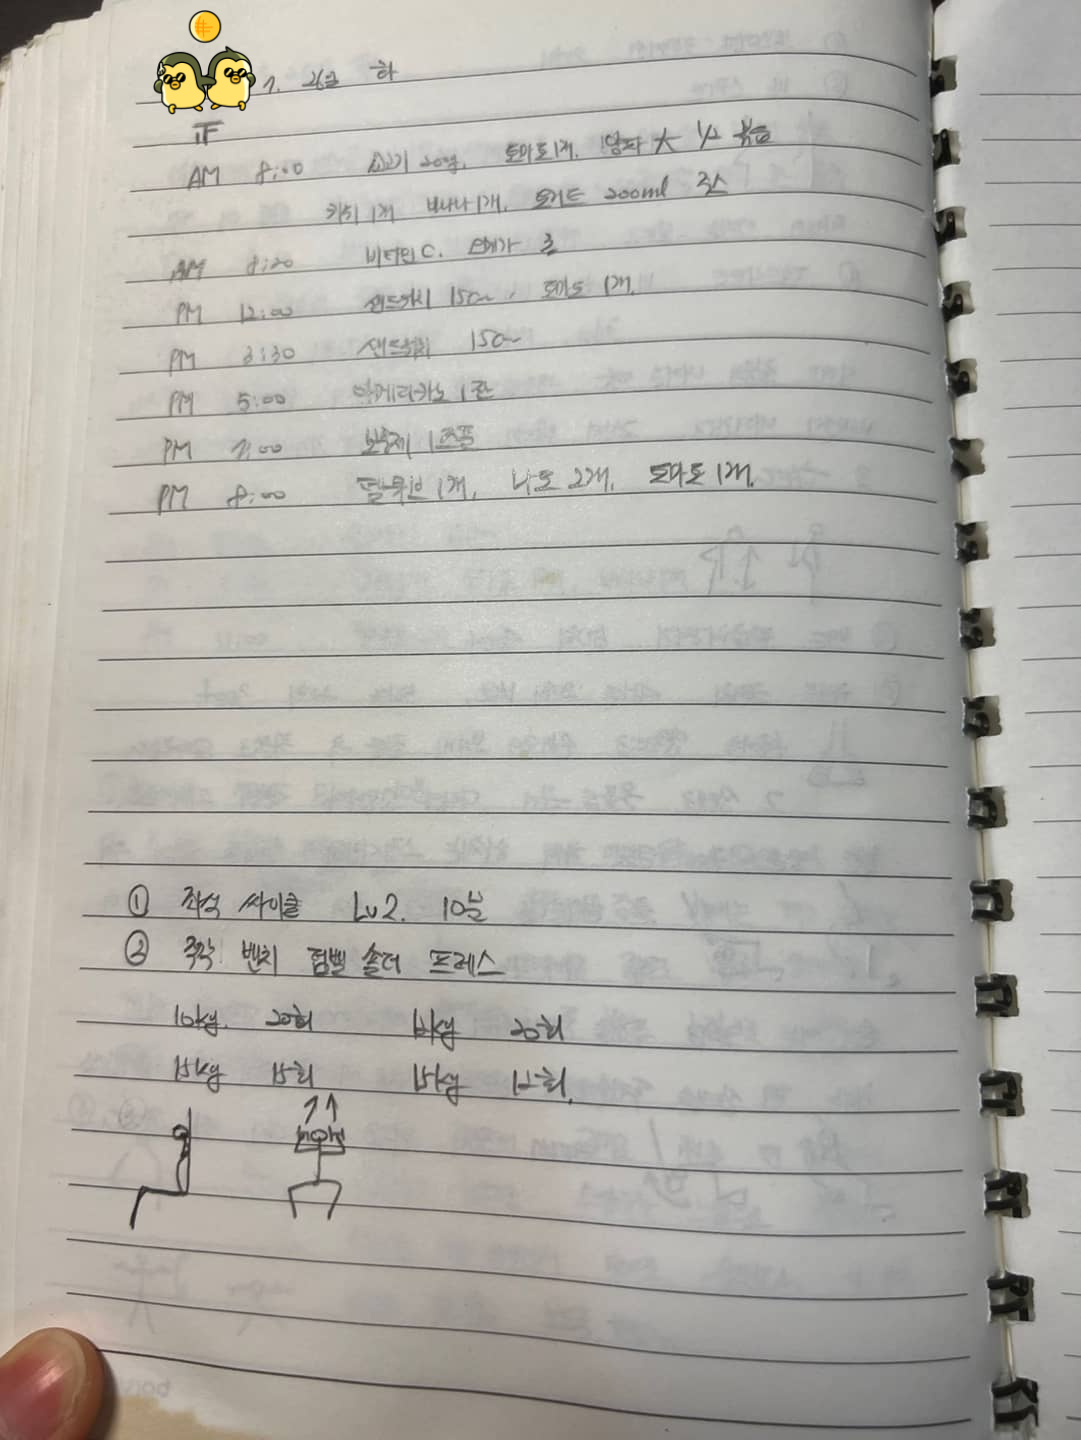 正
AM 8:00 소고기 토마토 1개. 양파 大 1/2 볶음
키위 1개 바나나 1개. 200ml 주스
AM 8:20 비타민 C. 오메가 3
PM 12:00 샌드위치 토마토 1개.
PM 3:30 샌드위치
PM 5:00 아메리카노 1잔
PM 7:00 보충제 1스푼
PM 8:00 1개. 낫또 2개. 토마토 1개.
① 좌식 싸이클 Lv2. 10분
② 벤치 덤벨 숄더 프레스
10kg. 20회 20회
15kg 15회 15kg 12회.